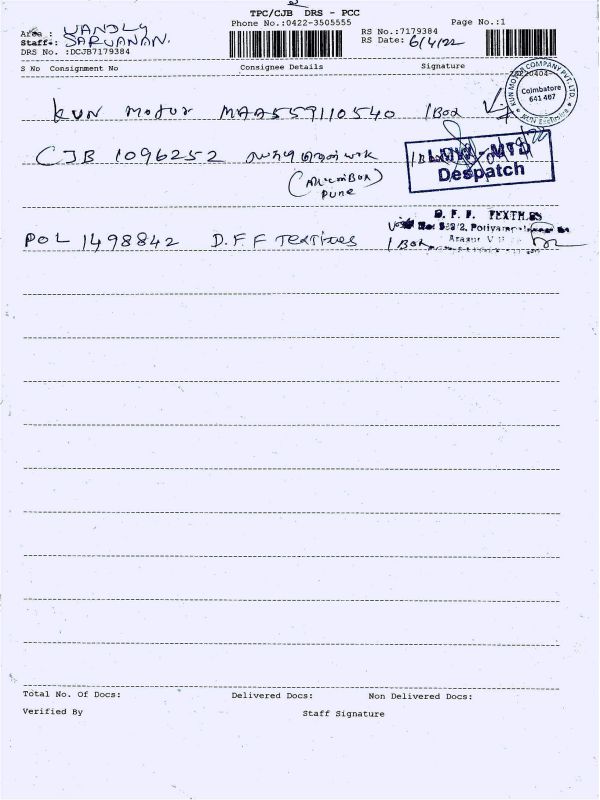 TPC/CJB DRS - PCC
Phone No.:0422-3505555 Page No.:1
Area : VANDLY
Staff : SARVANAN.
RS No.:7179384
RS Date: 6/4/22
DRS No. :DCJB7179384
S No Consignment No Consignee Details Signature
KUN MOTOR COMPANY PVT. LTD.
Coimbatore
641 407
KUN Motor MAA559110540 1 Box
CJB 1096252
1 Box
MTD
Despatch
Pune
D. F. F. TEXTILES
POL 1498842 D.F.F Textiles 1 Box
Total No. Of Docs: Delivered Docs: Non Delivered Docs:
Verified By Staff Signature